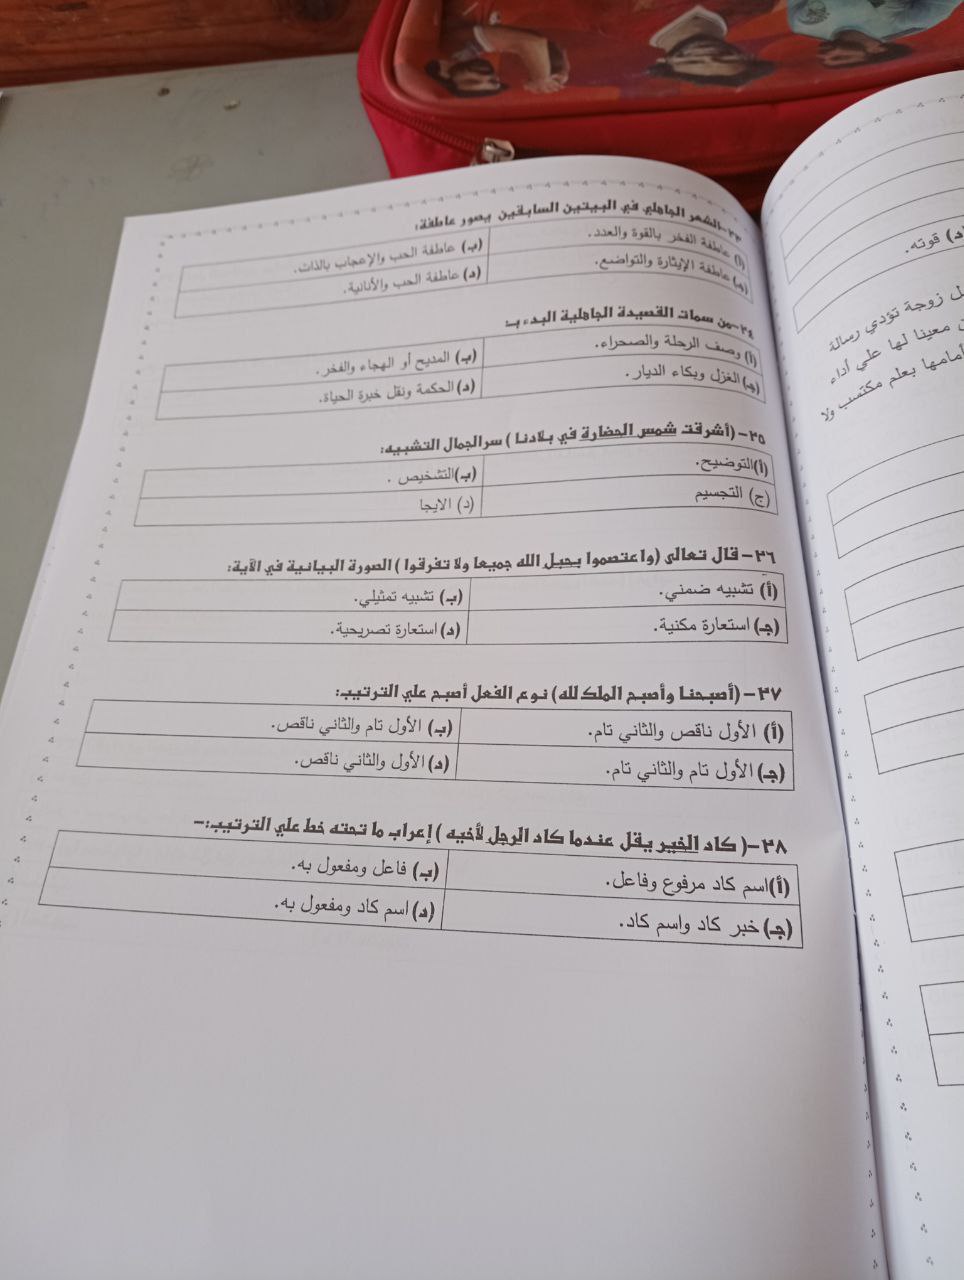 ٣٣-الشعر الجاهلي في البيتين السابقين يصور عاطفة:
(أ) عاطفة الفخر بالقوة والعدد.
(ب) عاطفة الحب والإعجاب بالذات.
(جـ) عاطفة الإيثارة والتواضع.
(د) عاطفة الحب والأنانية.
٣٤-من سمات القصيدة الجاهلية البدء بـ:
(أ) وصف الرحلة والصحراء.
(ب) المديح أو الهجاء والفخر.
(جـ) الغزل وبكاء الديار.
(د) الحكمة ونقل خبرة الحياة.
٣٥-(أشرقت شمس الحضارة في بلادنا) سر الجمال التشبيه:
(أ)التوضيح.
(ب)التشخيص .
(ج) التجسيم
(د) الايجا
٣٦-قال تعالى (واعتصموا بحبل الله جميعا ولا تفرقوا) الصورة البيانية في الآية:
(أ) تشبيه ضمني.
(ب) تشبيه تمثيلي.
(جـ) استعارة مكنية.
(د) استعارة تصريحية.
٣٧-(أصبحنا وأصبح الملك لله) نوع الفعل أصبح علي الترتيب:
(أ) الأول ناقص والثاني تام.
(ب) الأول تام والثاني ناقص.
(جـ) الأول تام والثاني تام.
(د) الأول والثاني ناقص.
٣٨-(كاد الخير يقل عندما كاد الرجل لأخيه) إعراب ما تحته خط علي الترتيب:-
(أ)اسم كاد مرفوع وفاعل.
(ب) فاعل ومفعول به.
(جـ) خبر كاد واسم كاد.
(د) اسم كاد ومفعول به.
د) قوته.
ل زوجة تؤدي رسالة
ن معينا لها علي أداء
أمامها بعلم مكتسب ولا